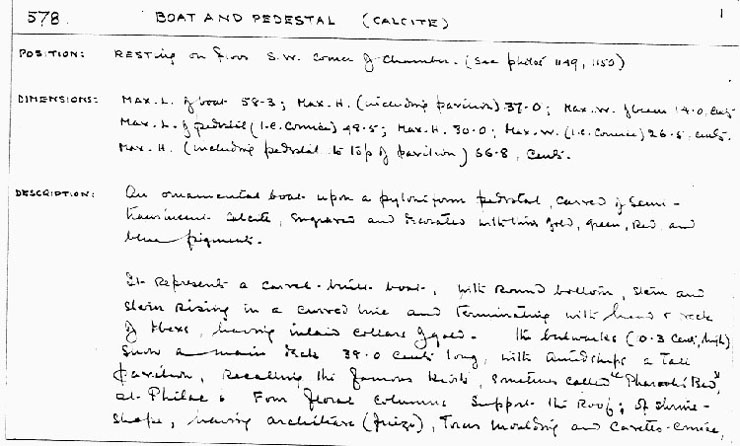 578. BOAT AND PEDESTAL (CALCITE) 1
POSITION: Resting on floor S.W. corner of Chamber. (See photos 1149, 1150)
DIMENSIONS: Max. L. of boat 58.3; Max. H. (including pavilion) 37.0; Max. W. of beam 14.0, cents
Max. L. of pedestal (i.e. cornice) 48.5; Max. H. 30.0; Max. W. (i.e. cornice) 26.5, cents.
Max. H. (including pedestal to top of pavilion) 66.8, cents.
DESCRIPTION: An ornamental boat upon a pyloniform pedestal, carved of semi-
translucent calcite, engraved and decorated with gold, green, red and
blue pigments.
It represents a carvel-built boat, with round bottom, stem and
stern rising in a curved line and terminating with head & neck
of Ibexs, having inlaid collars of gold. The bulwarks (0.3 cent, high)
show a main deck 38.0 cents long, with amidships a tall
pavilion, recalling the famous Kiosk, sometimes called "Pharaoh's Bed",
at Philae. Four floral columns support the roof; of shrine-
shape, having architrave (frieze), Torus moulding and Cavetto-Cornice,